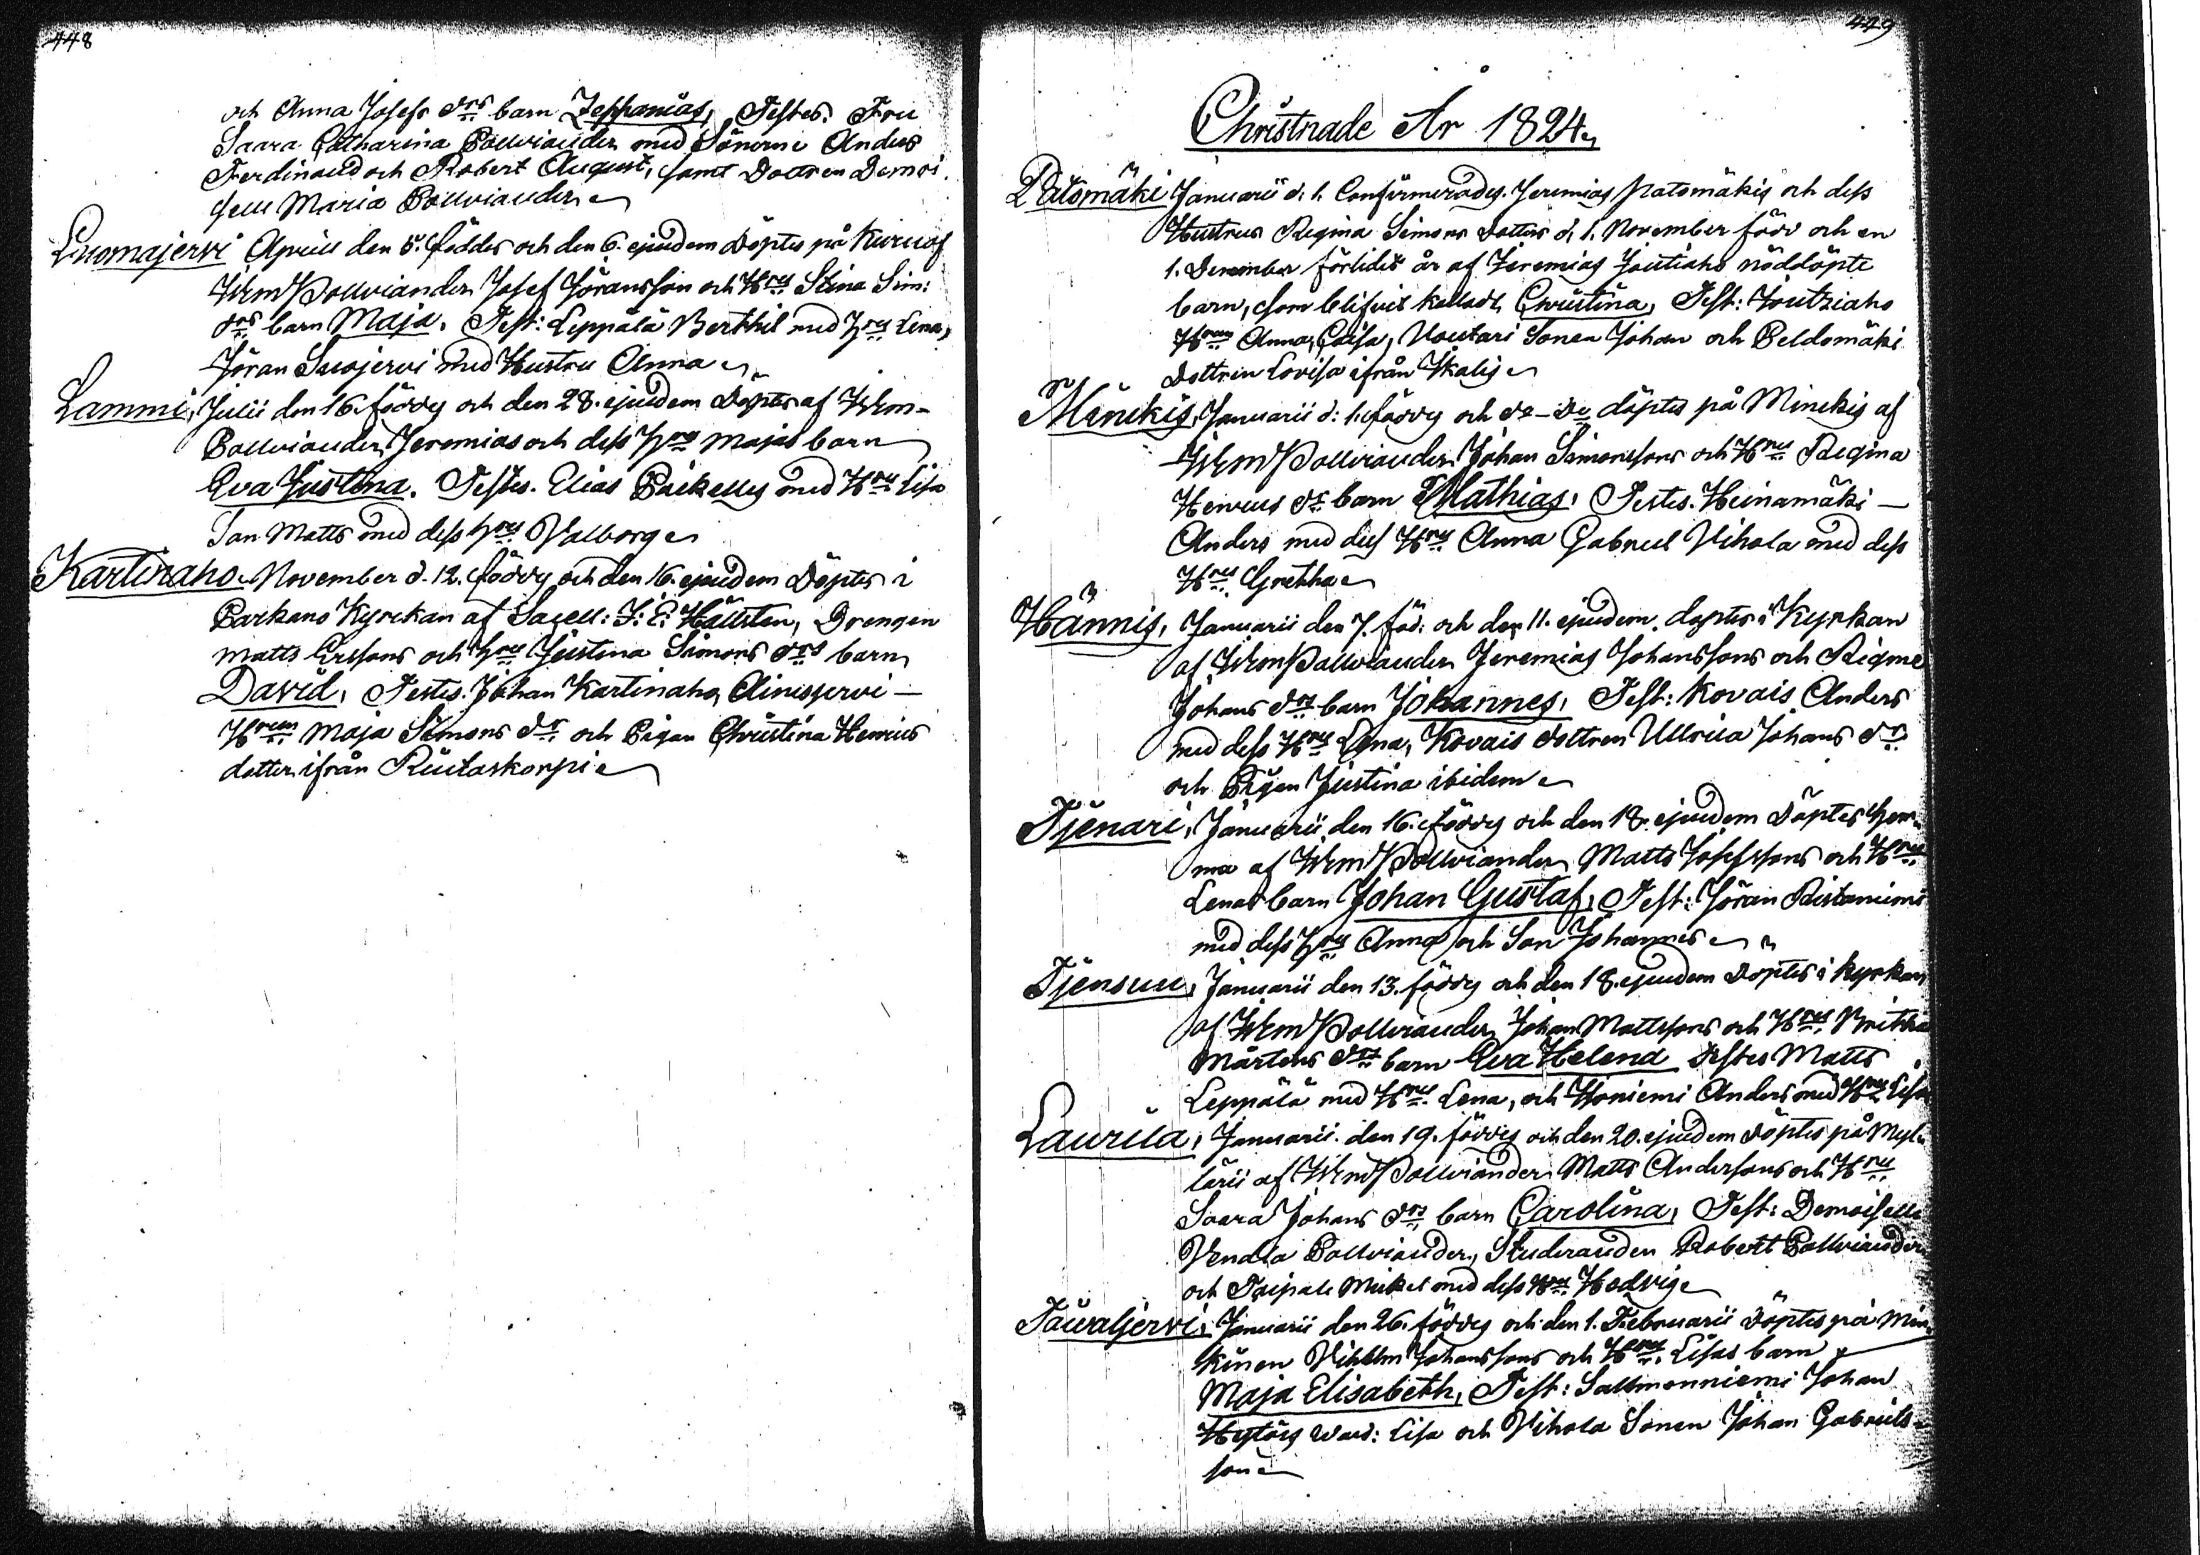 448
och Anna Josefs drs barn Zephanias, Testes: Fru
Saara Catharina Pallviander med Sönerne Anders
Ferdinand och Robert August, samt Dottren Demoi
selle Maria Pallviander
Luomajervi Aprill den 5. föddes och den 6. ejusdem Döptes på
af Pallviander Josef Jöransson och Hrus Stina Sim:
drs barn Maja. Test: Leppälä Berthil med Hru Lena,
Jöran Suojervi med Hustru Anna
Lammi, Julii den 16. föddes och den 28. ejusdem Döptes af
Pallviander, Jeremias och dess Hrus Majas barn
Eva Justina. Testes. Elias Päikelles med Hru Lisa
Jan Matts med dess Hru Valborg
Kartinaho November d. 12. föddes och den 16. ejusdem Döptes i
Parkano Kyrckan af Sacell: J: E: Hällsten, Drengen
Matts Ersons och Hrus Justina Simons drs barn
David, Testes. Johan Kartinaho,
Hrun Maja Simons dr och Pigan Christina Henrics
dotter ifrån Riutaskorpi
449
Christnade År 1824.
Patomäki Januarii d. 1. Confirmerades. Jeremias Patomäkis och dess
Hustrus Regina Simons Dotters d. 1. November född och en
1. December förlidet år af Jeremias Joutiaho nöddöpte
barn, som blifvit kalladt Christina, Test: Joutziaho
Hrun Anna Caisa, Uoutari Sonen Johan och Peldomäki
Dottren Lovisa ifrån Ikalis
Minckis, Januarii d: 1. föddes och do - do döptes på Minckis af
Pallviander Johan Simonssons och Hrus Regina
Henrics dr barn Mathias, Testes. Heinamäki -
Anders med dess Hru Anna Gabriel Vihola med dess
Hru Gretha
Hännis, Januarii den 7. föd: och den 11. ejusdem döptes i Kyrkan
af Pallviander Jeremias Johanssons och Regine
Johans drs barn Johannes, Test: Kovais Anders
med dess Hru Lena, Kovais dottren Ullrica Johans dr
och Pigan Justina ibidem
Tjenari, Januarii den 16. föddes och den 18. ejusdem Döptes hem-
ma af Pallviander Matts Josefssons och Hrus
Lenas barn Johan Gustaf, Test: Jöran Ristaniemi
med dess Hru Anna och Son Johannes
Tjensuu, Januarii den 13. föddes och den 18. ejusdem Döptes i kyrkan
af Pallviander Johan Mattssons och Hrus Britha
Mårtens drs barn Eva Helena Testes Matts
Leppälä med Hru Lena, och Honiemi Anders med Hru Lisa
Laurila, Januarii den 19. föddes och den 20. ejusdem döptes på Myl-
lärii af Pallviander Matts Anderssons och Hrus
Saara Johans drs barn Carolina, Test: Demoiselle
Vendla Pallviander, Studeranden Robert Pallviander
och Mickel med dess Hru Hedvig
Januarii den 26. föddes och den 1. Februarii Döptes på Min-
kinen Vilhelm Johanssons och Hrus Lisas barn
Maja Elisabeth, Test: Sallmenniemi Johan
Lisa och Vihola Sonen Johan Gabriels-
son